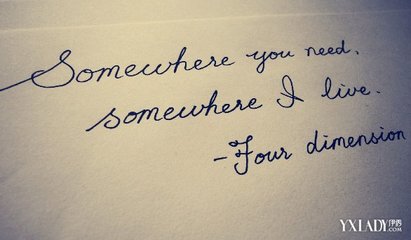 Somewhere you need.
somewhere I live.
-Four dimension
YXLADY伊秀
.COM